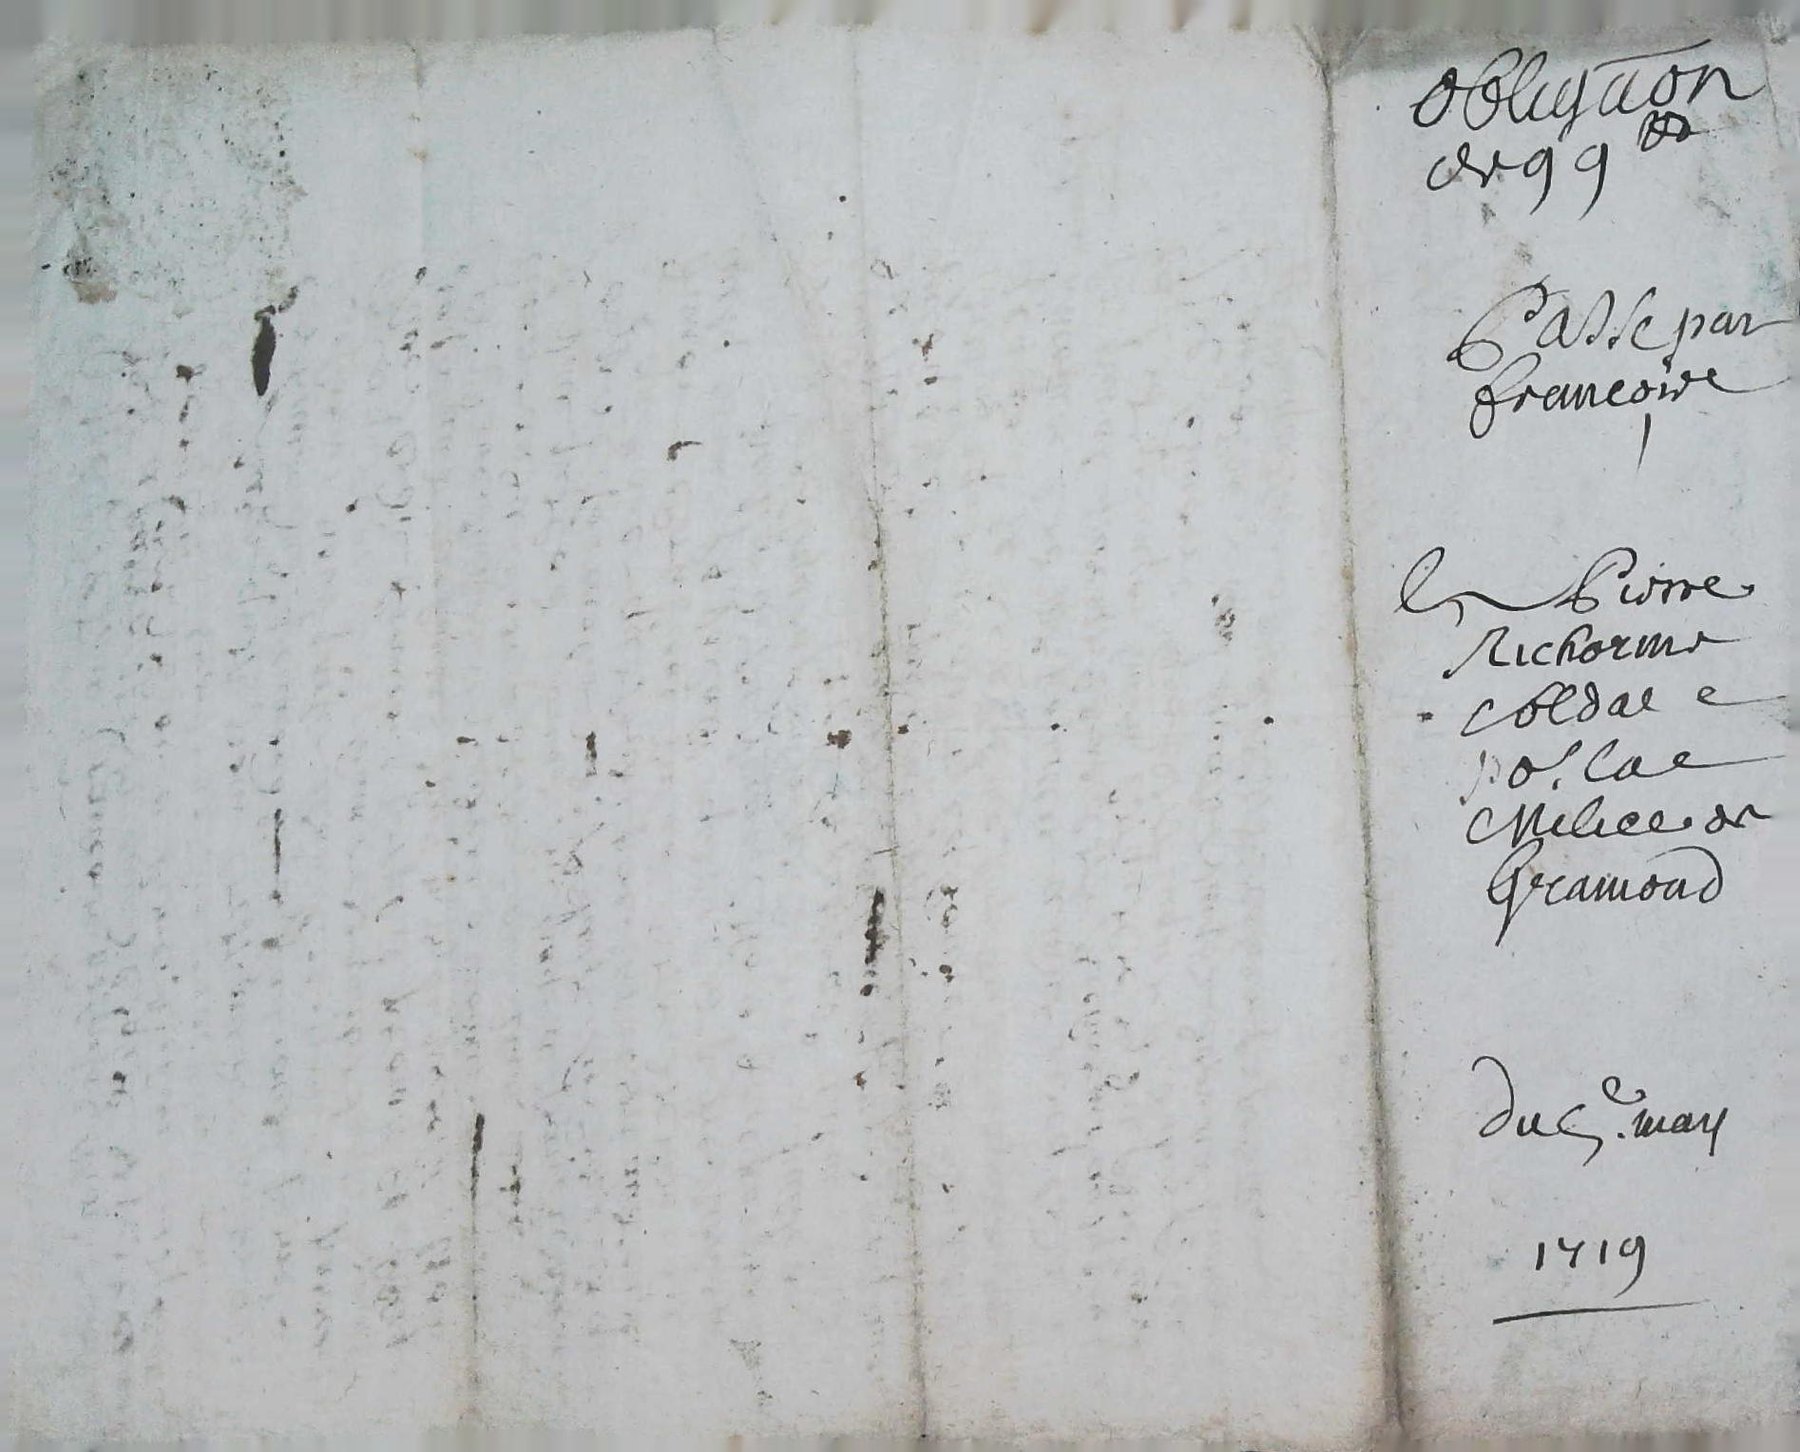 obligãon
de 99 ₶
Passe par
francoise
Pierre
Richorme
soldat
po.r la
Milice de
Gramond
du 5e. may
1719